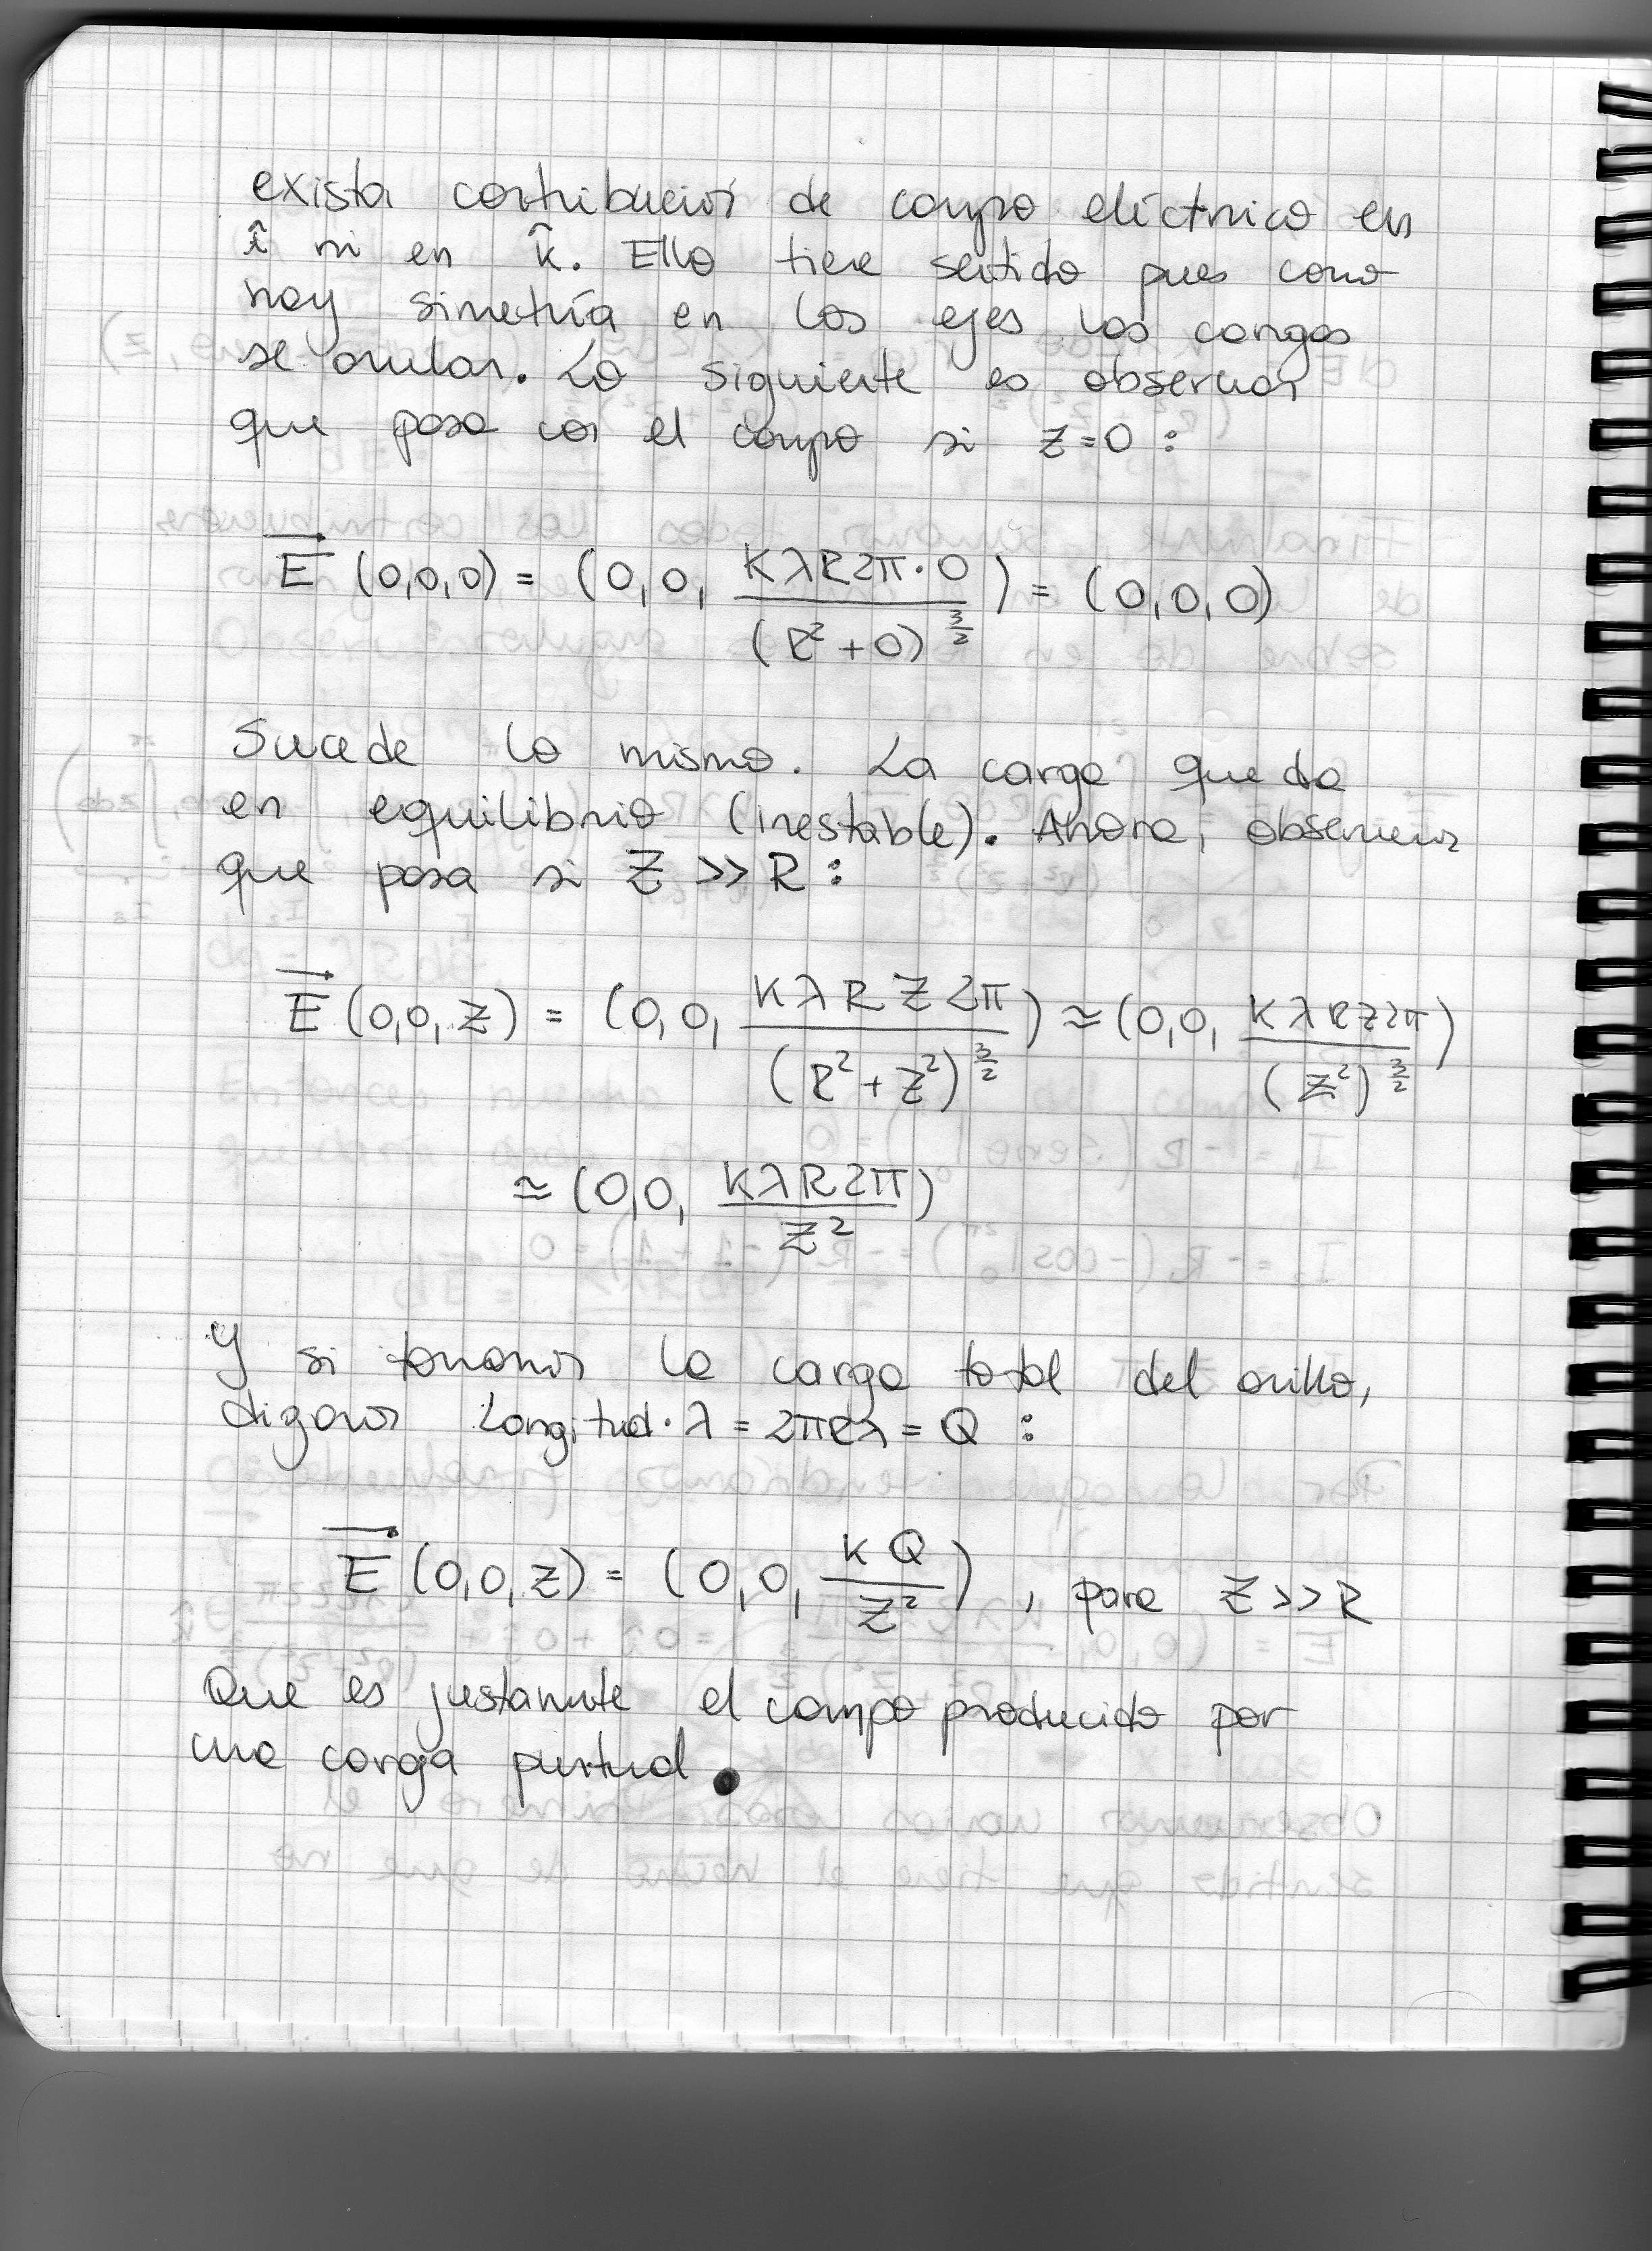 exista contribución de campo eléctrico en
î ni en k̂. Ello tiene sentido pues como
hay simetría en los ejes las cargas
se anulan. Lo siguiente es observar
que pasa con el campo si z=0:
E⃗ (0,0,0) = (0,0, KλR2π·0 / (R²+0)^(3/2)) = (0,0,0)
Sucede lo mismo. La carga queda
en equilibrio (inestable). Ahora, observemos
que pasa si Z >> R:
E⃗ (0,0,Z) = (0,0, KλRZ2π / (R²+Z²)^(3/2)) ≃ (0,0, KλRZ2π / (Z²)^(3/2))
≃ (0,0, KλR2π / Z²)
Y si tomamos la carga total del anillo,
digamos Longitud·λ = 2πRλ = Q:
E⃗ (0,0,Z) = (0,0, KQ / Z²), para Z>>R
Que es justamente el campo producido por
una carga puntual.